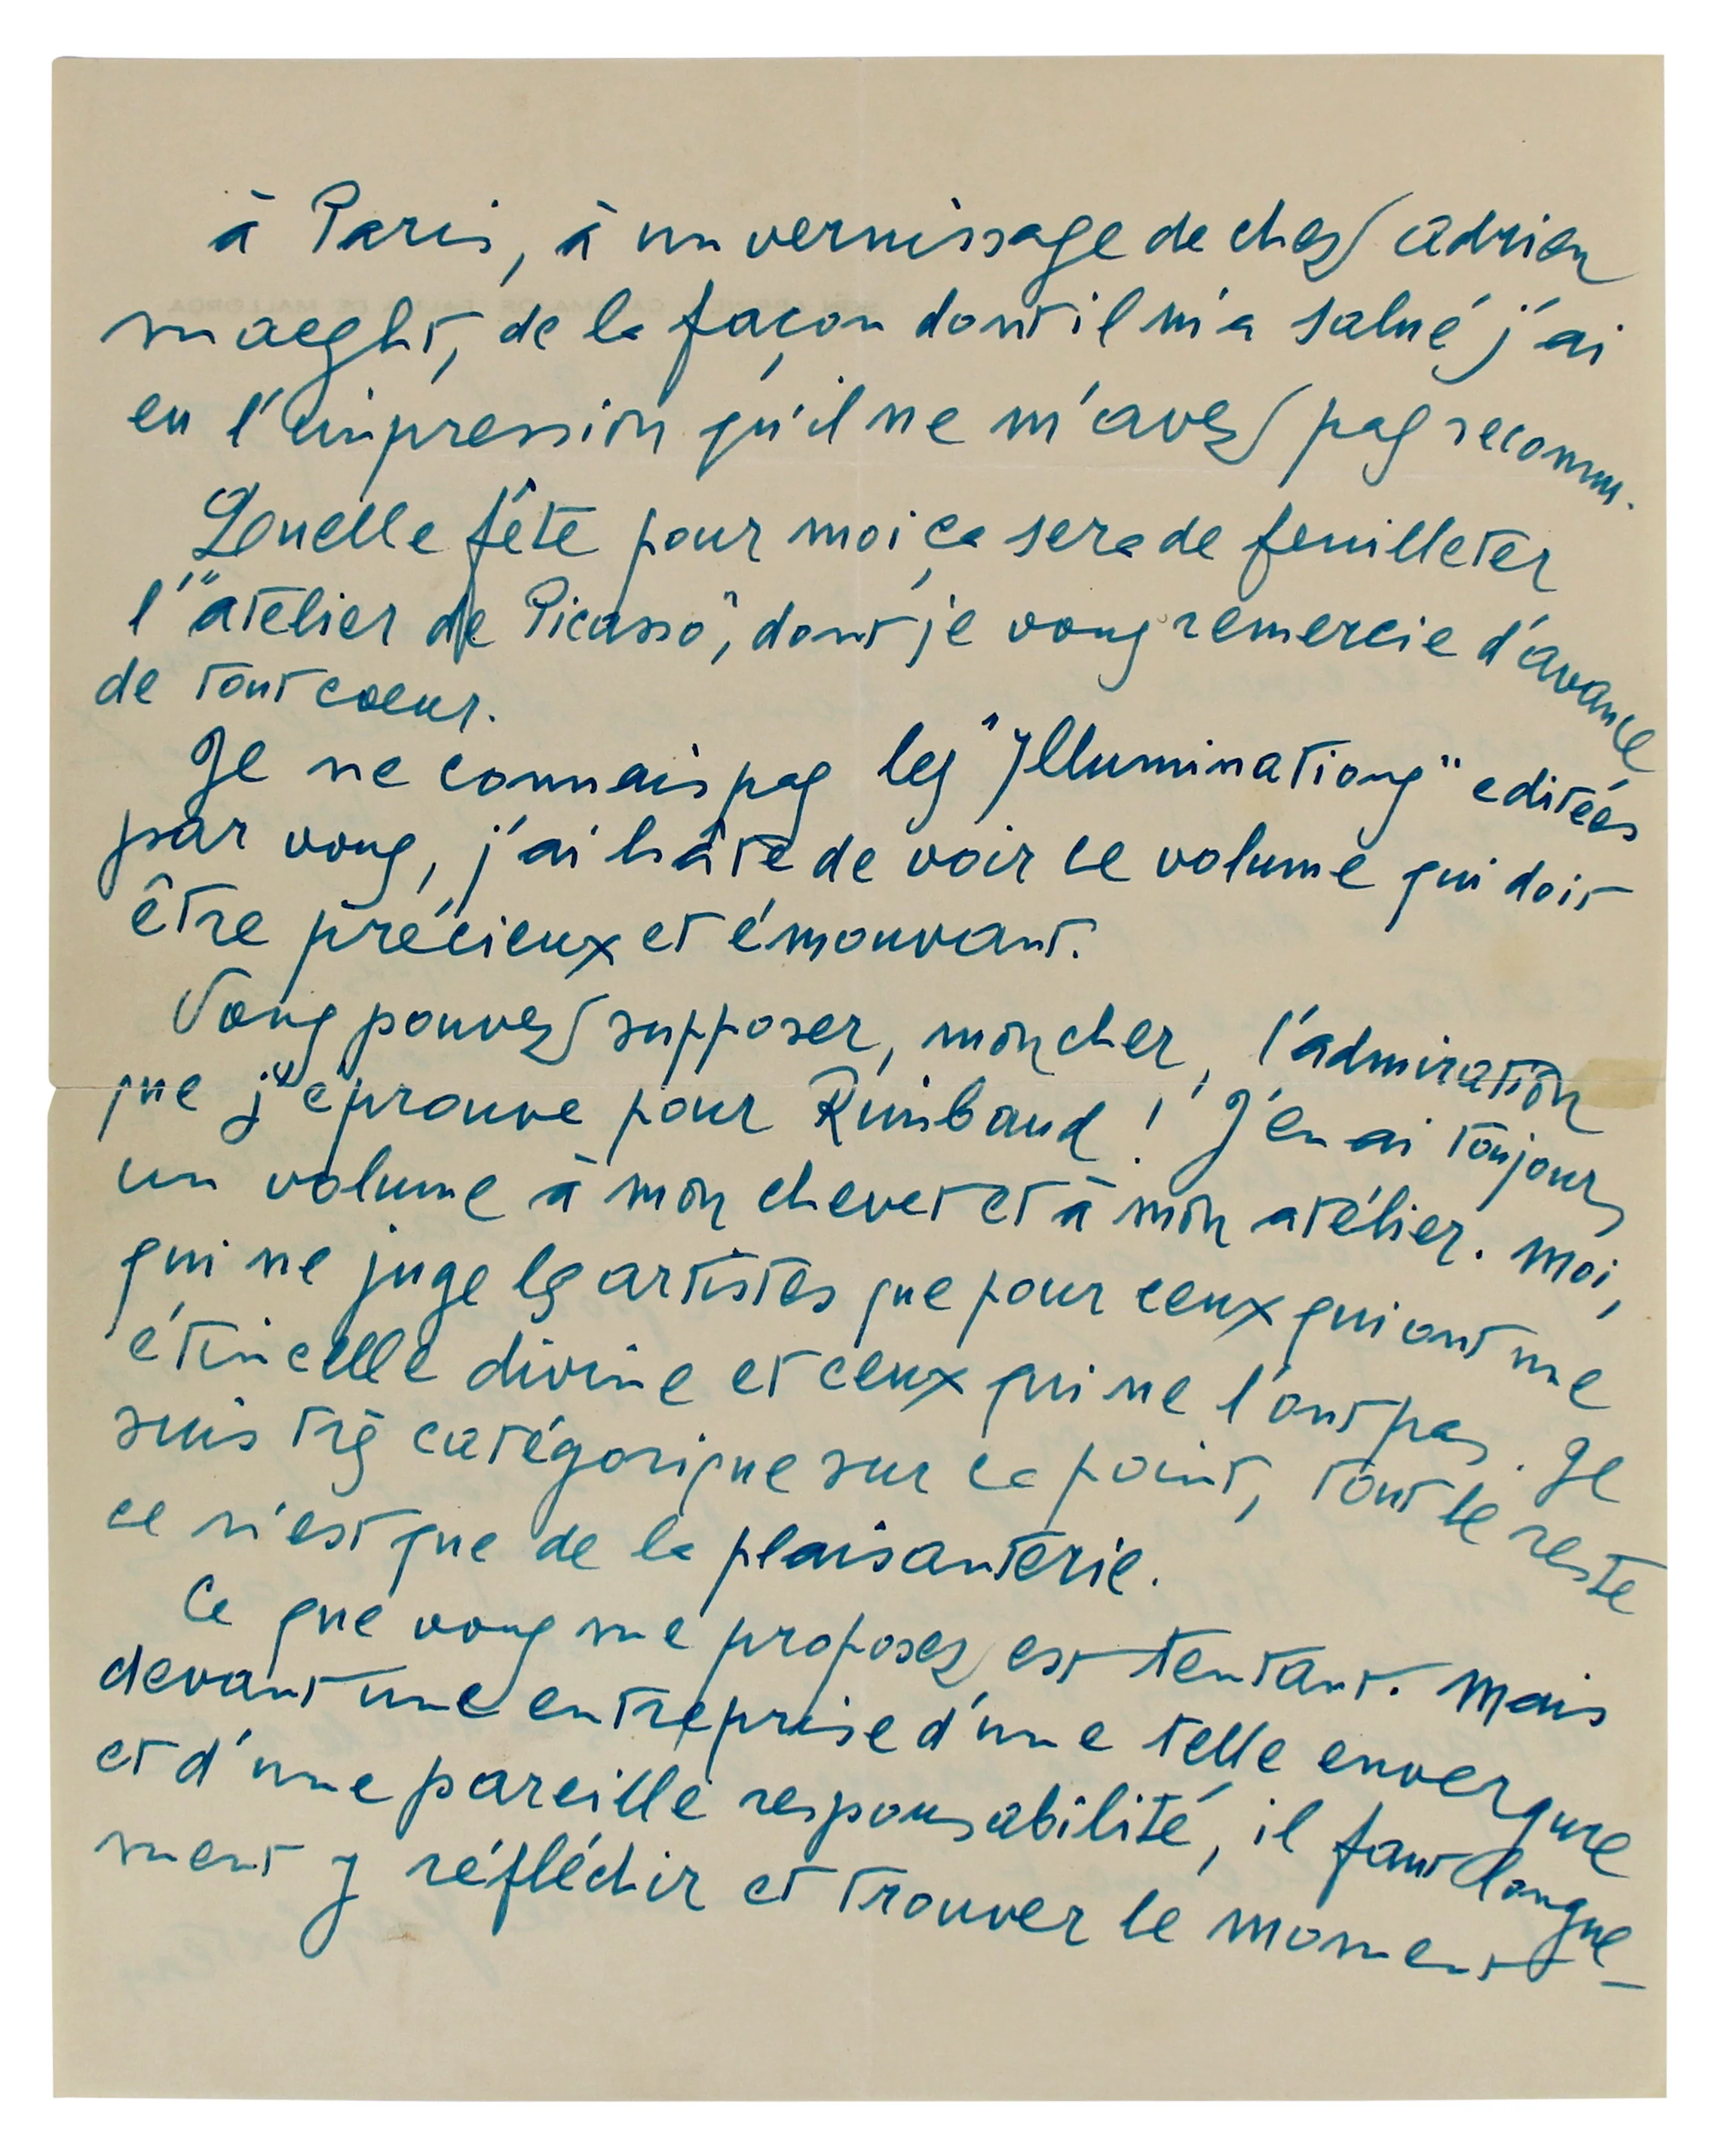 à Paris, à un vernissage de chez Adrien
Maeght, de la façon dont il m'a salué j'ai
eu l'impression qu'il ne m'avez pas reconnu.
Quelle fête pour moi ça sera de feuilleter
l'"atélier de Picasso", dont je vous remercie d'avance
de tout coeur.
Je ne connais pas les "Illuminations" editées
par vous, j'ai hâte de voir ce volume qui doit
être précieux et émouvant.
Vous pouvez supposer, mon cher, l'admiration
que j'éprouve pour Rimbaud! J'en ai toujours
un volume à mon chevet et à mon atélier. Moi,
qui ne juge les artistes que pour ceux qui ont une
étincelle divine et ceux qui ne l'ont pas. Je
suis très catégorique sur ce point, tout le reste
ce n'est que de la plaisanterie.
Ce que vous me proposez est tentant. Mais
devant une entreprise d'une telle envergure
et d'une pareille responsabilité, il faut longue-
ment y réfléchir et trouver le moment